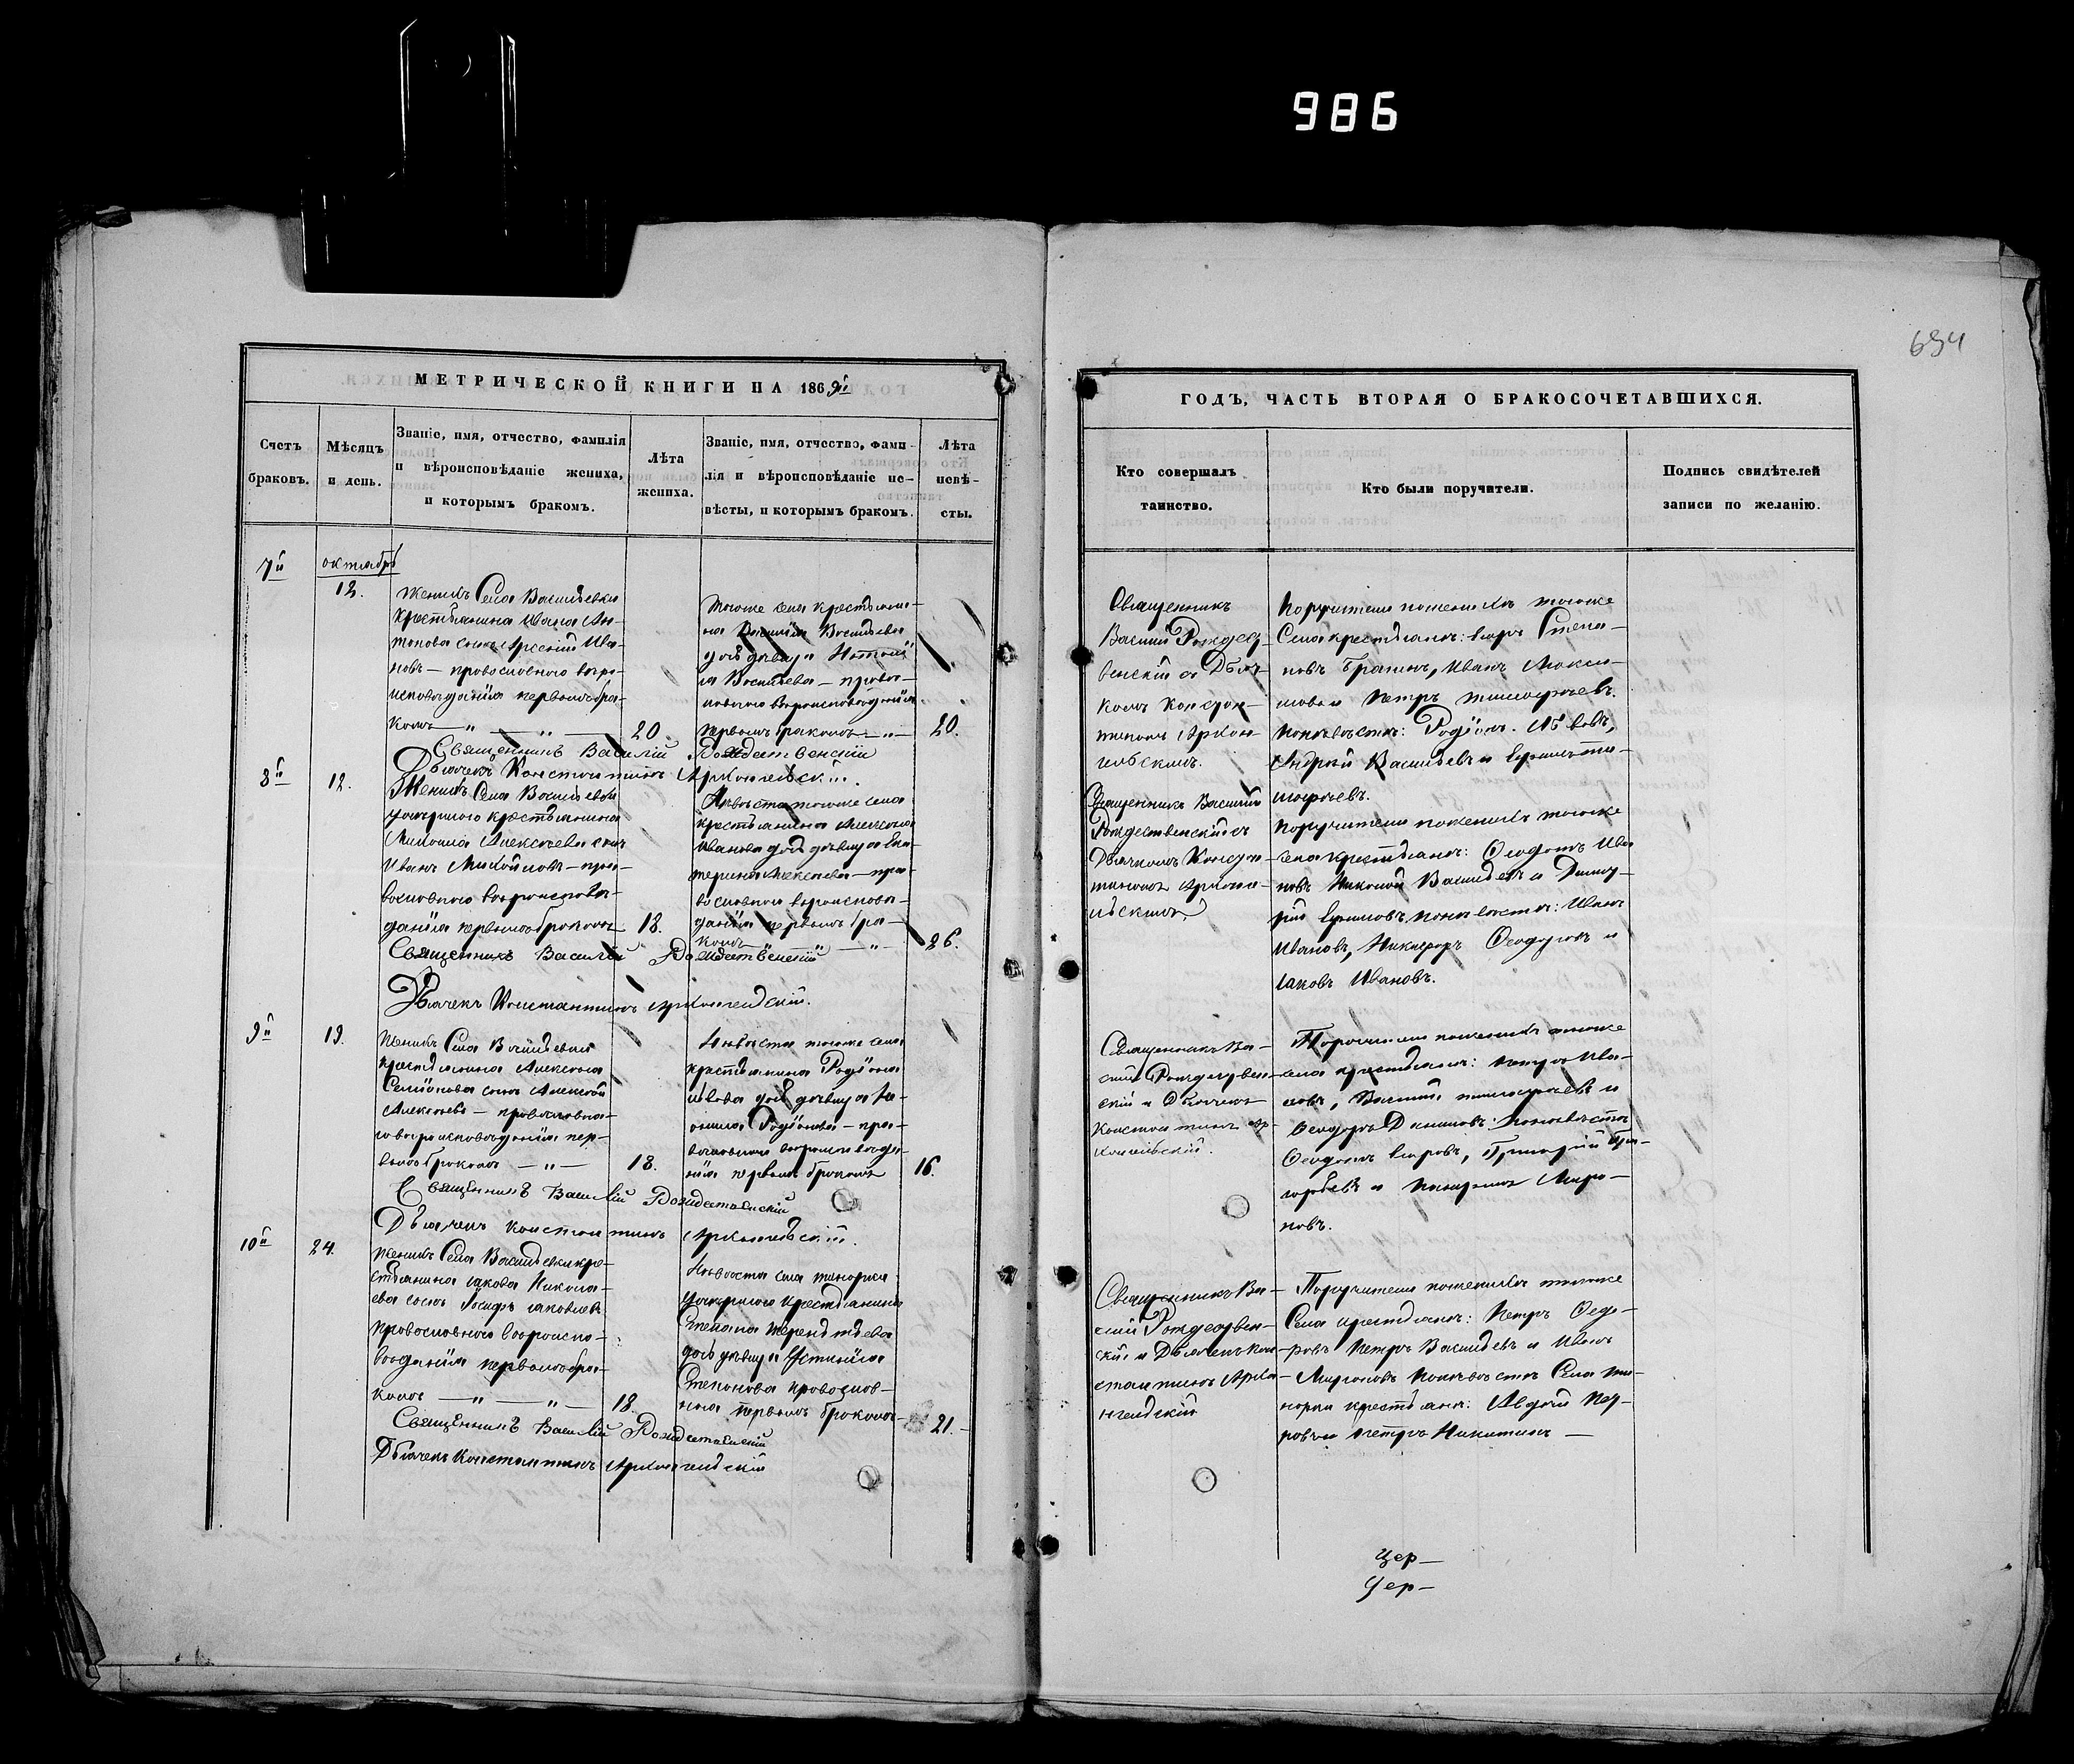 986
694
МЕТРИЧЕСКОЙ КНИГИ НА 1869й
Счетъ браковъ.
Мѣсяцъ и день.
Званіе, имя, отчество, фамилія и вѣроисповѣданіе жениха, и которымъ бракомъ.
Лѣта жениха.
Званіе, имя, отчество, фамилія и вѣроисповѣданіе невѣсты, и которымъ бракомъ.
Лѣта невѣсты.
7й
октября
12.
Женихъ Села Васильевки
крестьянина Ивана Ан-
тонова сынъ Арсений Ива-
новъ — православного вѣро-
исповѣданія первымъ бра-
комъ — „ — „ —
20.
тогоже села крестьяни-
на Василія Васильева
дочь дѣвица
Васильева — право-
славного вѣроисповѣданія
первымъ бракомъ — „ —
20.
Священникъ Василій Рождественскій
Дьячекъ Константинъ Архангельскій.
8й
12.
Женихъ Села Васильевки
умершаго крестьянина
Михаила Алексѣева сынъ
Иванъ Михайловъ — пра-
вославного вѣроисповѣ-
данія первымъ бракомъ
18.
Невѣста тогоже села
крестьянина Алексѣя
Иванова дочь дѣвица Ека-
терина Алексѣева — пра-
вославного вѣроисповѣ-
данія первымъ бра-
комъ — „ —
26.
Священникъ Василій Рождественскій
Дьячекъ Константинъ Архангельскій.
9й
19.
Женихъ Села Васильевки
крестьянина Алексѣя
Семіонова сынъ Алексѣй
Алексѣевъ — православна-
го вѣроисповѣданія пер-
вымъ бракомъ — „ —
18.
Невѣста тогоже села
крестьянина Родіона
Львова дочь дѣвица
Родіонова — пра-
вославного вѣроисповѣда-
нія первымъ бракомъ
16.
Священникъ Василій Рождественскій
Дьячекъ Константинъ Архангельскій.
10й
24.
Женихъ Села Васильевки кре-
стьянина Іакова Никола-
ева сынъ Іосифъ Іаковлевъ
православного вѣроиспо-
вѣданія первымъ бра-
комъ — „ — „ —
18.
Невѣста села
умершаго крестьянина
Степана Терентьева
дочь дѣвица Устинія
Степанова православ-
ная первымъ бракомъ —
21.
Священникъ Василій Рождественскій
Дьячекъ Константинъ Архангельскій
ГОДЪ, ЧАСТЬ ВТОРАЯ О БРАКОСОЧЕТАВШИХСЯ.
Кто совершалъ таинство.
Кто были поручители.
Подпись свидѣтелей записи по желанію.
Священникъ
Василій Рождест-
венскій съ Дьяч-
комъ Констан-
тиномъ Архан-
гельскимъ.
Поручители по женихѣ тогоже
Села крестьяне: Егоръ Степа-
новъ Иванъ Макси-
мовъ и Петръ Тимофѣевъ.
По невѣстѣ: Родіонъ Львовъ,
Андрей Васильевъ и Ти-
мофѣевъ.
Священникъ Василій
Рождественскій съ
Дьячкомъ Констан-
тиномъ Арханге-
льскимъ.
Поручители по женихѣ тогоже
села крестьяне: Ѳеодотъ Ива-
новъ Николай Васильевъ и Димит-
рій Ефимовъ по невѣстѣ: Иванъ
Ивановъ, Никифоръ Ѳеодоровъ и
Іаковъ Ивановъ.
Священникъ Ва-
силій Рождествен-
скій и Дьячекъ
Константинъ Ар-
хангельскій.
Поручители по женихѣ тогоже
села крестьяне: Петръ Ива-
новъ, Василій Тимофѣевъ и
Ѳеодоръ Даниловъ: по невѣстѣ
Ѳеодотъ Егоровъ, Григорій Гри-
горьевъ и Миро-
новъ.
Священникъ Ва-
силій Рождествен-
скій и Дьячекъ Кон-
стантинъ Арха-
нгельскій
Поручители по женихѣ тогоже
Села крестьяне: Петръ Ѳедо-
ровъ Петръ Васильевъ и Иванъ
Мироновъ по невѣстѣ Села
крестьяне: Авдѣй Пет-
ровъ и Петръ Никитинъ —
Цер—
Цер—